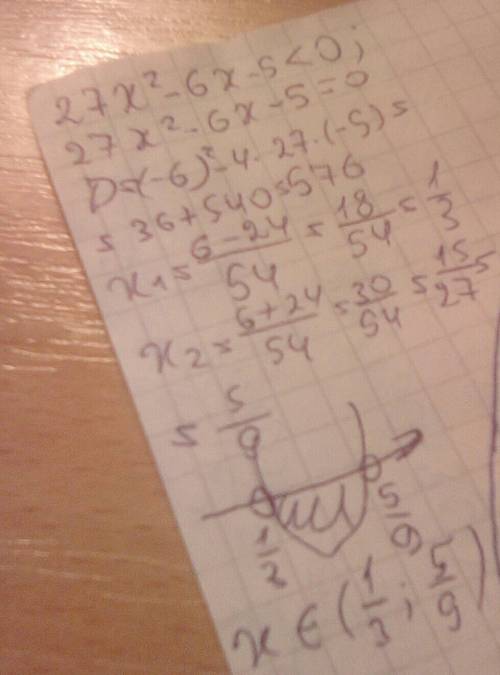 27x² - 6x - 5 < 0;
27x² - 6x - 5 = 0
D = (-6)² - 4 · 27 · (-5) =
= 36 + 540 = 576
x₁ = (6 - 24)/54 = 18/54 = 1/3
x₂ = (6 + 24)/54 = 30/54 = 15/27 =
= 5/9
1/2 5/9
x ∈ (1/3; 5/9)